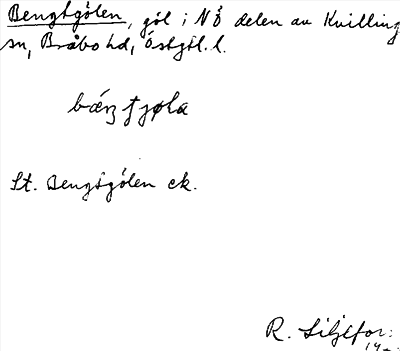 Bengtgölen, göl i NÖ delen av Kvillinge
sn, Bråbo hd, Östgöt. l.
St. Bengtgölen ek.
R. Liljefor: